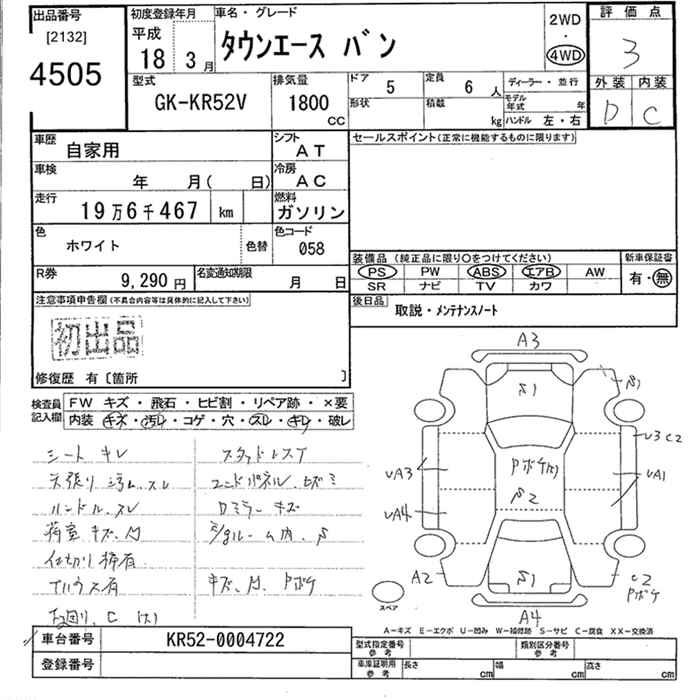 出品番号
[2132]
4505
初度登録年月
平成
18 3月
車名・グレード
タウンエース バン
2WD
・
4WD
評価点
3
外装 内装
D C
型式
GK-KR52V
排気量
1800 CC
ドア 5
定員 6 人
形状
積載 kg
ディーラー・並行
モデル年式 年
ハンドル 左・右
車歴
自家用
シフト
AT
車検
年 月( 日)
冷房
AC
走行
19万6千467 km
燃料
ガソリン
色
ホワイト
色替
色コード
058
R券
9,290円
名変通知期限
月 日
セールスポイント(正常に機能するものに限ります)
装備品 (純正品に限り〇をつけてください)
PS PW ABS エアB AW
SR ナビ TV カワ
新車保証書
有・無
後日品
取説・メンテナンスノート
注意事項申告欄(不具合内容等は具体的に記入して下さい)
初出品
修復歴 有〔箇所 〕
検査員記入欄
FW キズ・飛石・ヒビ割・リペア跡・×要
内装 キズ・汚レ・コゲ・穴・スレ・キレ・破レ
シート キレ
天張り 汚レ、スレ
ハンドル、スレ
荷室 キズ、凹
仕切り棒有
下回り、C (大)
スタッドレスT
コンドパネル、ヒズミ
Dミラー キズ
E/gルーム内、S
キズ、凹、Pボケ
A3
S1
S1
U3 C2
UA3
Pボケ(大)
UA1
S2
UA4
A2
S1
C2
Pボケ
A4
スペア
A-キズ E-エクボ U-凹み W-補修跡 S-サビ C-腐食 XX-交換済
車台番号 KR52-0004722
登録番号
型式指定番号 参考
類別区分番号 参考
車庫証明用 参考
長さ cm
幅 cm
高さ cm